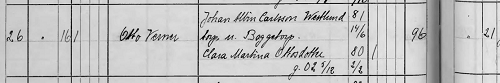 Johan Albin Carlsson Westlund 81
26 " 161 Otto Verner torp. u. Baggetorp. 14/6 96 21
Clara Martina Ottosdotter 80 1
g. 02 5/12 2/2